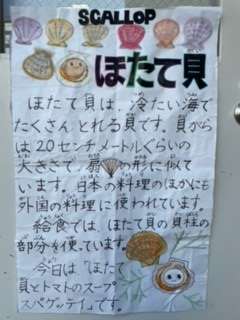 SCALLOP
ほたて貝
ほたて貝は、冷たい海で
たくさんとれる貝です。貝がら
は20センチメートルぐらいの
大きさで、扇の形に似て
います。日本の料理のほかにも
外国の料理に使われています。
給食では、ほたて貝の貝柱の
部分を使っています。
今日は「ほたて
貝とトマトのスープ
スパゲッティ」です。